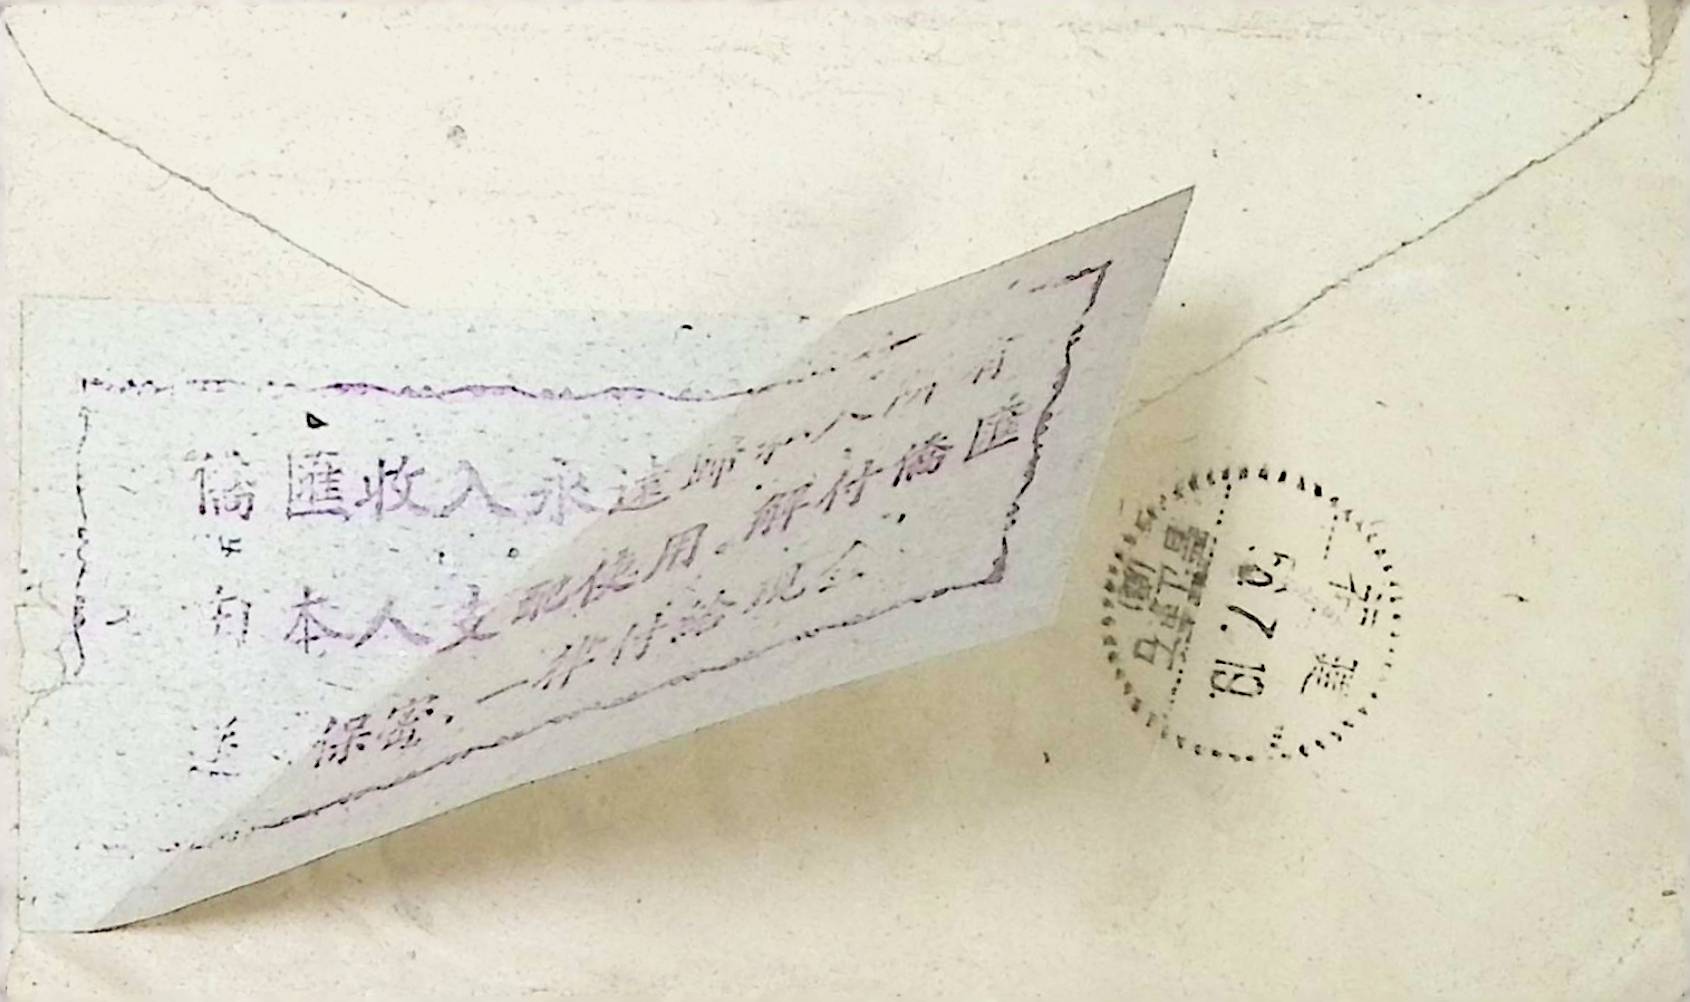 僑匯收入永遠歸本人所有
由本人支配使用。解付僑匯
送、保密,一律付給現金
福建
19.7.